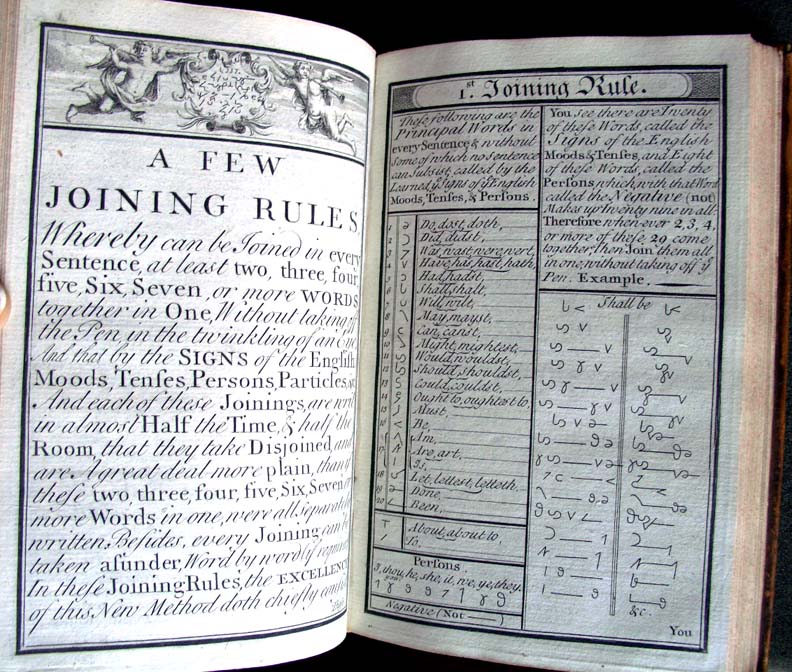 A FEW
JOINING RULES,
Whereby can be Joined in every
Sentence, at least two, three, four,
five, Six, Seven, or more WORDS
together in One, Without taking off
the Pen, in the twinkling of an Eye
And that by the SIGNS of the English
Moods, Tenses, Persons, Particles, &c
And each of these Joinings, are writ
in almost Half the Time, & half the
Room, that they take Disjoined, and
are A great deal more plain, than if
these two, three, four, five, Six, Seven or
more Words in one, were all separately
written; Besides, every Joining can be
taken asunder, Word by word if required
In these Joining Rules, the EXCELLENCY
of this New Method doth chiefly consist
1st. Joining Rule.
These following are the
Principal Words in
every Sentence & without
Some of which no sentence
can Subsist, called by the
Learned ye Signs of ye English
Moods, Tenses, & Persons.
1 Do, dost, doth,
2 Did, didst,
3 Was, wast, were, wert,
4 Have, has, hast, hath,
5 Had, hadst,
6 Shall, shalt,
7 Will, wilt,
8 May, mayst,
9 Can, canst,
10 Might, mightest,
11 Would, wouldst,
12 Should, shouldst,
13 Could, couldst,
14 Ought to, oughtest to,
15 Must,
16 Be,
Am,
17 Are, art,
Is,
18 Let, lettest, letteth.
19 Done,
20 Been,
About, about to,
To,
Persons.
I, thou, he, she, it, we, ye, they.
Negative (Not —)
You see there are Twenty
of these Words, called the
Signs of the English
Moods & Tenses, and Eight
of these Words, called the
Persons, which, with that Word
called the Negative (not)
Makes up Twenty nine in all.
Therefore when ever 2, 3, 4,
or more of these 29 come
together, then Join them all
in one, without taking off ye
Pen. Example.
Shall be
&c.
You